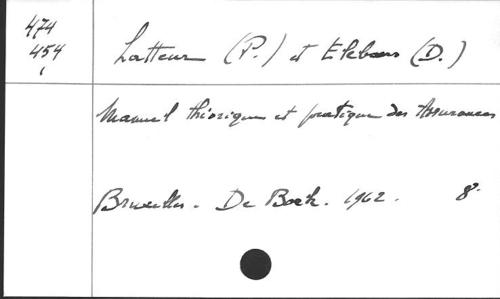 474
454
1
Latteur (P.) et Elebaers (D.)
Manuel théorique et pratique des Assurances
Bruxelles - De Boeck. 1962. 8°